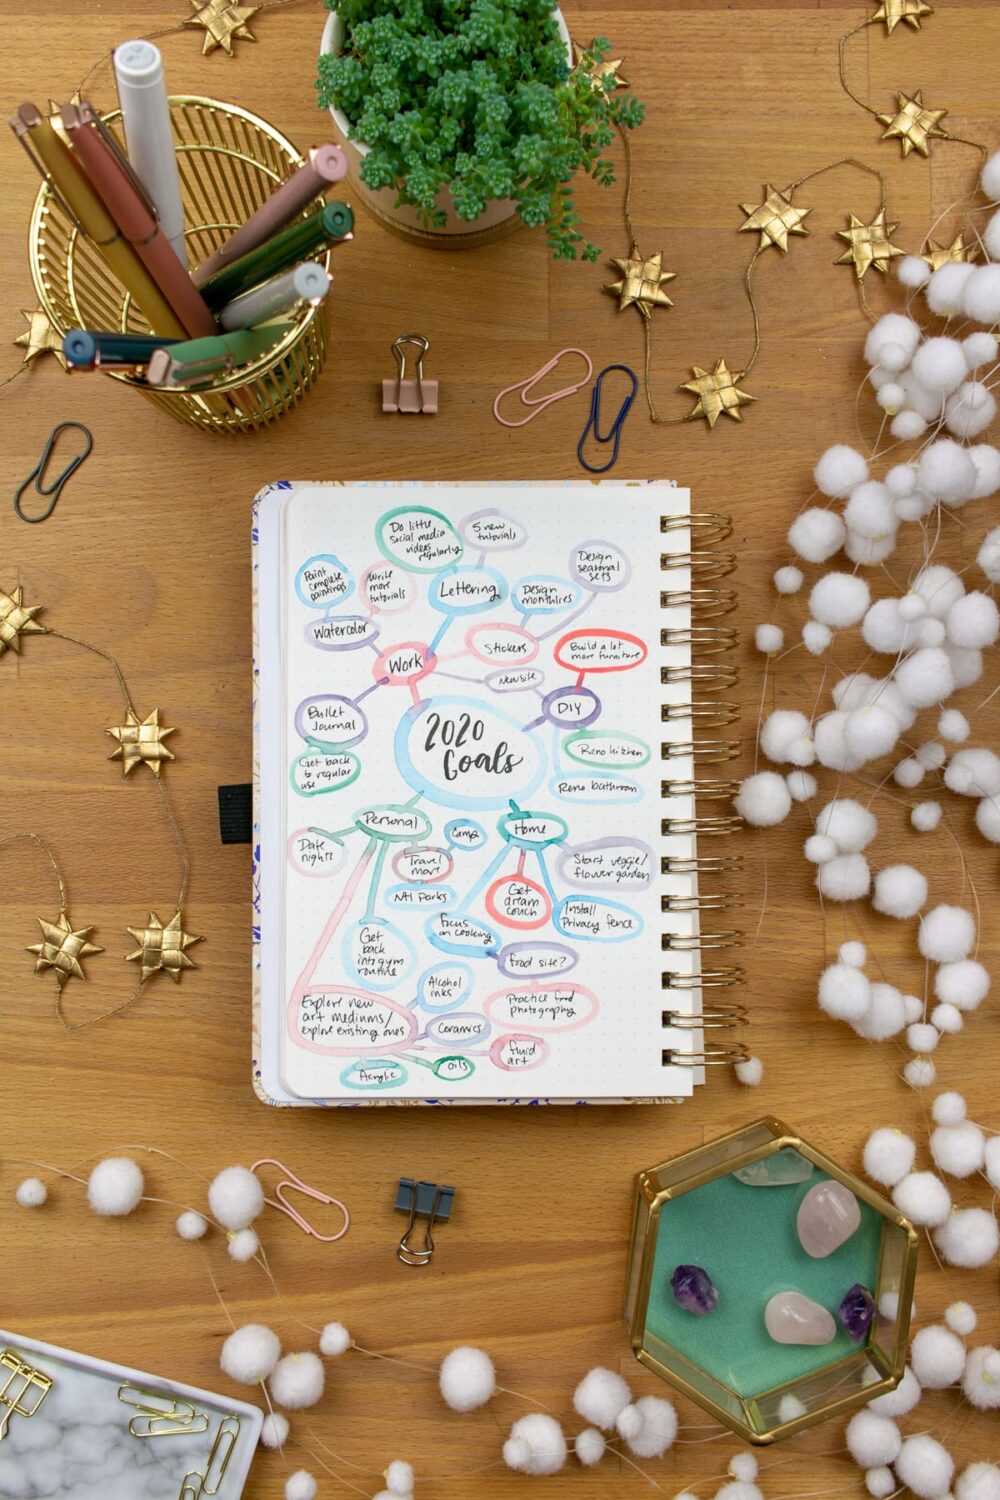 Do little
social media
videos
regularly
5 new
tutorials
Design
seasonal
sets
Paint
complete
paintings
Write
more
tutorials
Lettering
Design
monthlies
Watercolor
Stickers
Build a lot
more furniture
Work
New site
Bullet
Journal
2020
Goals
DIY
Get back
to regular
use
Reno kitchen
Reno bathroom
Personal
Camp
Home
Date
nights
Travel
more
Start veggie/
flower garden
Nat'l Parks
Get
dream
couch
Install
Privacy fence
Focus
on cooking
Get
back
into gym
routine
food site?
Alcohol
inks
Practice food
photography
Explore new
art mediums/
explore existing ones
Ceramics
fluid
art
Acrylic
oils